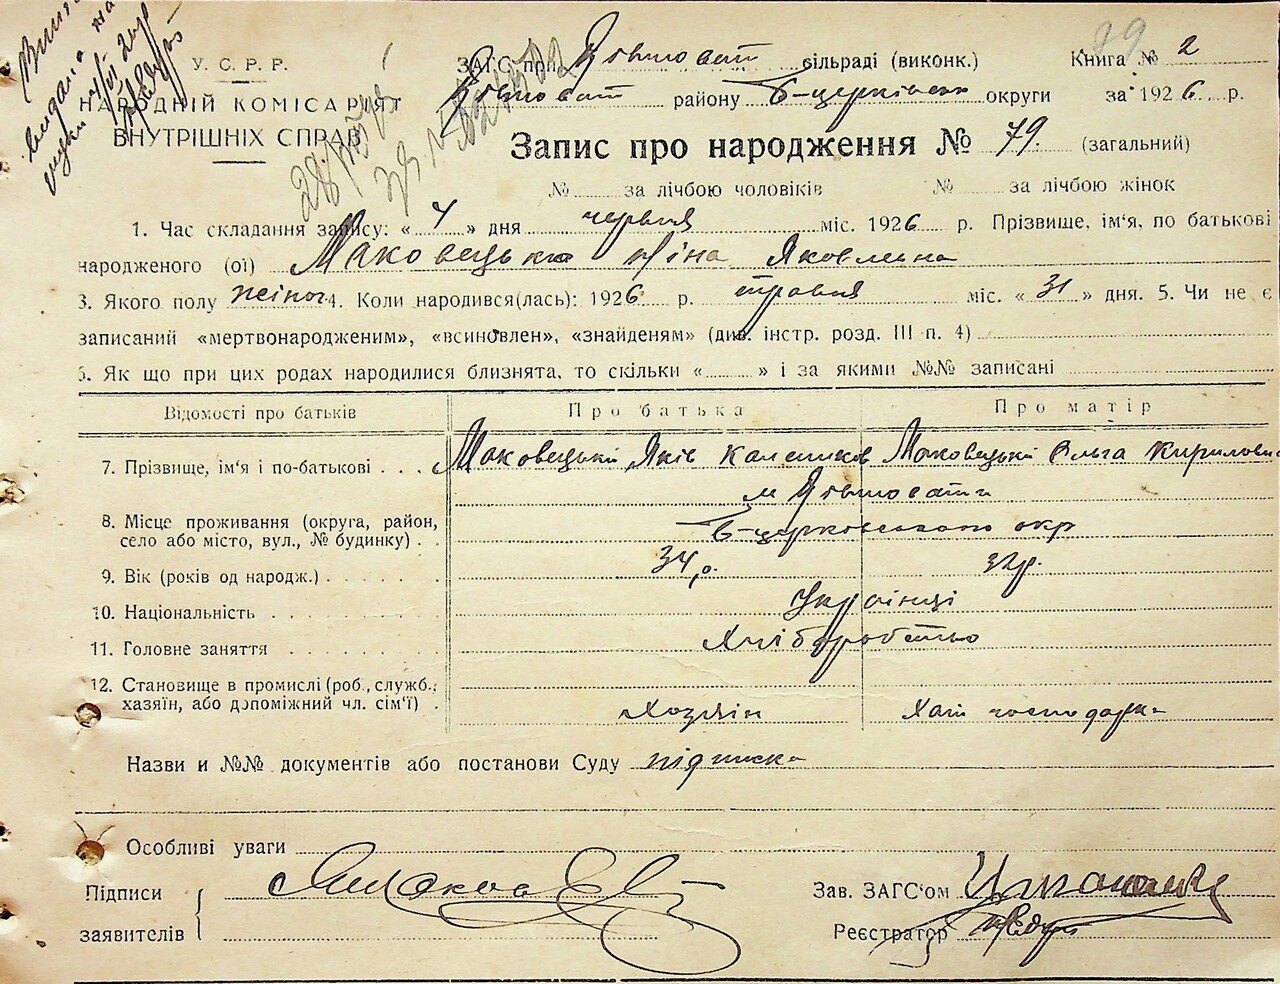 У. С. Р. Р.
НАРОДНІЙ КОМІСАРІЯТ
ВНУТРІШНІХ СПРАВ
ЗАГС при сільраді (виконк.) Книга № 2
району Б-церківськ округи за 1926 р.
Запис про народження № 79. (загальний)
№ за лічбою чоловіків № за лічбою жінок
1. Час складання запису: «4» дня червня міс. 1926 р. Прізвище, ім'я, по батькові
народженого (ої) Маковецька Ніна Яковлевна
3. Якого полу жіног 4. Коли народився(лась): 1926 р. травня міс. «31» дня. 5. Чи не є
записаний «мертвонародженим», «всиновлен», «знайденям» (див. інстр. розд. III п. 4)
6. Як що при цих родах народилися близнята, то скільки « » і за якими №№ записані
Відомості про батьків Про батька Про матір
7. Прізвище, ім'я і по-батькові . . . Маковецький Яків Маковецькій Ольга Кирилови
м
8. Місце проживання (округа, район,
село або місто, вул., № будинку) . . Б-церковського окр
9. Вік (років од народж.) . . . . . . 34 р. 32 р.
10. Національність . . . . . . . Українці
11. Головне заняття . . . . . . . Хліборобство
12. Становище в промислі (роб., служб.,
хазяїн, або допоміжний чл. сім'ї) . Хозяін Хат господарка
Назви и №№ документів або постанови Суду підписка
Особливі уваги
Підписи
заявителів
Зав. ЗАГС'ом
Реєстратор